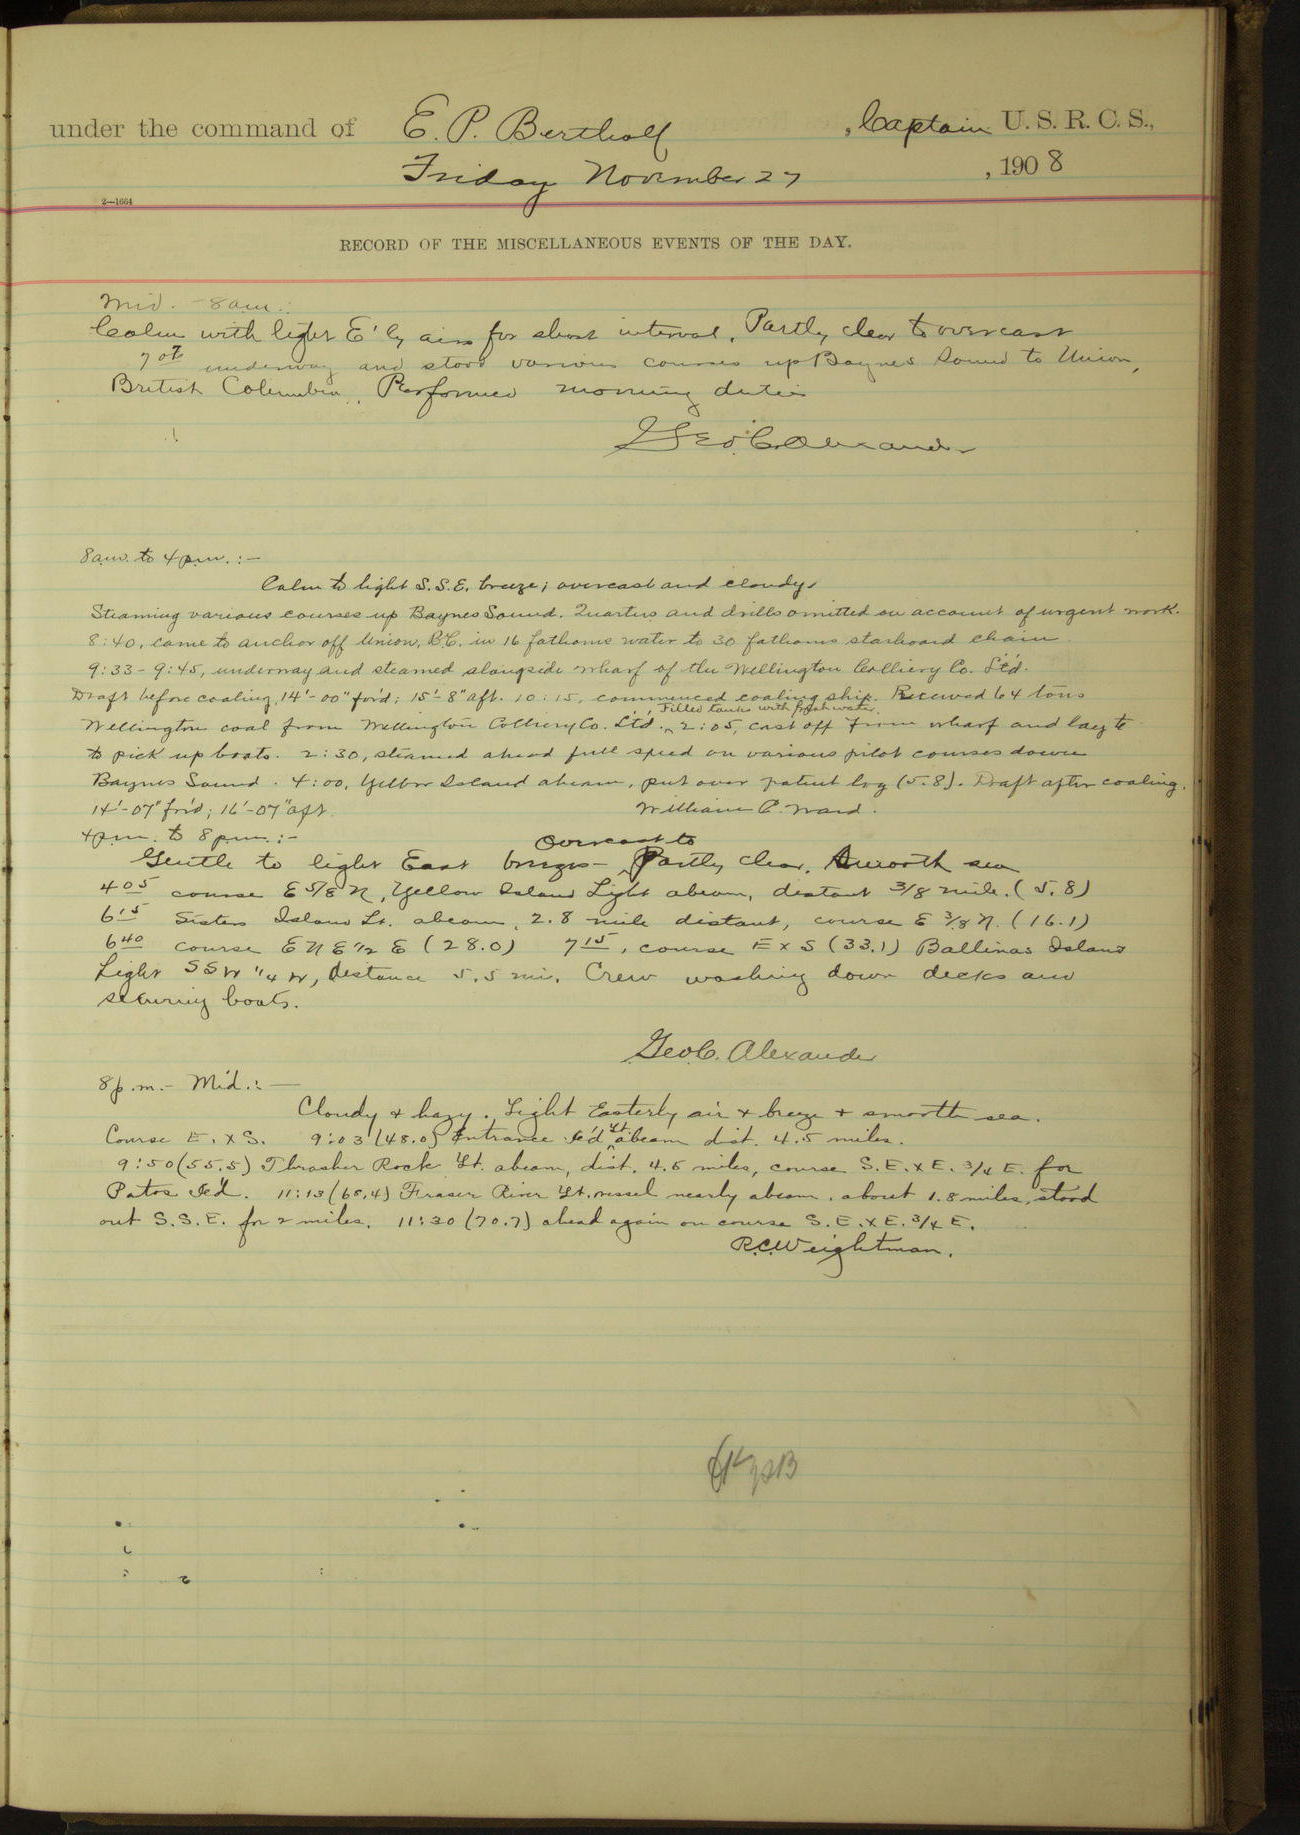 under the command of E. P. Bertholf, Captain U. S. R. C. S.,
Friday November 27, 1908
2—1664
RECORD OF THE MISCELLANEOUS EVENTS OF THE DAY.
Mid. - 8 am.:
Calm with light E'ly airs for short interval. Partly clear to overcast
underway and stood various courses up Baynes Sound to Union,
British Columbia. Performed morning duties
Geo. C. Alexander
8 a.m. to 4 p.m. :-
Calm to light S.S.E. breeze; overcast and cloudy.
Steaming various courses up Baynes Sound. Quarters and drills omitted on account of urgent work.
8:40, came to anchor off Union, B.C. in 16 fathoms water to 30 fathoms starboard chain
9:33 - 9:45, underway and steamed alongside wharf of the Wellington Colliery Co. Ltd.
Draft before coaling, 14'-00" for'd; 15'-8" aft. 10:15, commenced coaling ship. Received 64 tons
Filled tanks with fresh water.
Wellington coal from Wellington Colliery Co. Ltd. ^ 2:05, cast off from wharf and lay to
to pick up boats. 2:30, steamed ahead full speed on various pilot courses down
Baynes Sound. 4:00, Yellow Island abeam, put over patent log (5.8). Draft after coaling,
14'-07" for'd; 16'-07" aft. William P. Ward.
4 pm. to 8 pm. :-
Overcast to
Gentle to light East breezes - ^ Partly clear. Smooth sea
4 05 course E 5/8 N, Yellow Island Light abeam, distant 3/8 mile. (5.8)
6 15 Sisters Island Lt. abeam, 2.8 mile distant, course E 3/8 N. (16.1)
6 40 course E N E 1/2 E (28.0) 7 15, course E x S (33.1) Ballinas Island
Light SSW 1/4 W, distance 5.5 mi. Crew washing down decks and
securing boats.
Geo. C. Alexander
8 p.m. - Mid. : —
Cloudy + hazy. Light Easterly air + breeze + smooth sea.
Course E. x S. 9:03 (48.0) Entrance Is'd Lt. abeam dist. 4.5 miles.
9:50 (55.5) Thrasher Rock Lt. abeam, dist. 4.5 miles, course S.E. x E. 3/4 E. for
Patos Is'd. 11:13 (68.4) Fraser River Lt. vessel nearly abeam, about 1.8 miles, stood
out S.S.E. for 2 miles. 11:30 (70.7) ahead again on course S.E. x E. 3/4 E.
R.C. Weightman.